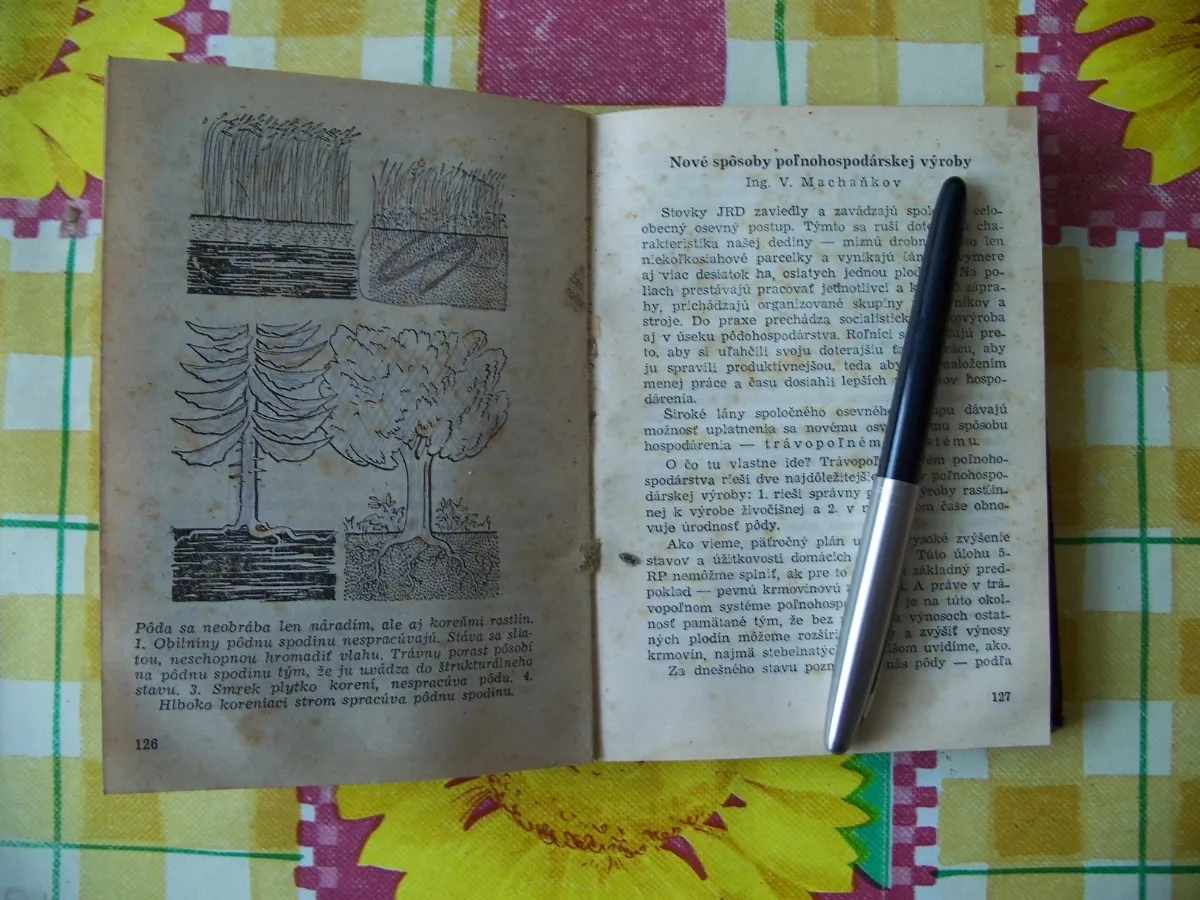 Pôda sa neobrába len náradím, ale aj koreňmi rastlín.
1. Obilniny pôdnu spodinu nespracúvajú. Stáva sa slia-
tou, neschopnou hromadiť vlahu. Trávny porast pôsobí
na pôdnu spodinu tým, že ju uvádza do štrukturálneho
stavu. 3. Smrek plytko korení, nespracúva pôdu. 4.
Hlboko koreniaci strom spracúva pôdnu spodinu.
126
Nové spôsoby poľnohospodárskej výroby
Ing. V. Machaňkov
Stovky JRD zaviedly a zavádzajú celo-
obecný osevný postup. Týmto sa ruší cha-
rakteristika našej dediny — miznú len
niekoľkosiahové parcelky a vynikajú výmere
aj viac desiatok ha, osiatych jednou Na po-
liach prestávajú pracovať jednotlivci a zápra-
hy, prichádzajú organizované skupiny a
stroje. Do praxe prechádza
aj v úseku pôdohospodárstva. Roľníci pre-
to, aby si uľahčili svoju doterajšiu aby
ju spravili produktívnejšou, teda aby
menej práce a času dosiahli lepších hospo-
dárenia.
Široké lány spoločného osevného dávajú
možnosť uplatnenia sa novému spôsobu
hospodárenia —
O čo tu vlastne ide? poľnoho-
spodárstva rieši dve poľnohospo-
dárskej výroby: 1. rieši správny rastlin-
nej k výrobe živočíšnej a 2. v čase obno-
vuje úrodnosť pôdy.
Ako vieme, päťročný plán vysoké zvýšenie
stavov a úžitkovosti domácich Túto úlohu 5-
RP nemôžme splniť, ak pre to základný pred-
poklad — pevnú krmovinovú A práve v trá-
vopoľnom systéme je na túto okol-
nosť pamätané tým, že bez výnosoch ostat-
ných plodín môžeme a zvýšiť výnosy
krmovín, najmä uvidíme, ako.
Za dnešného stavu nás pôdy — podľa
127